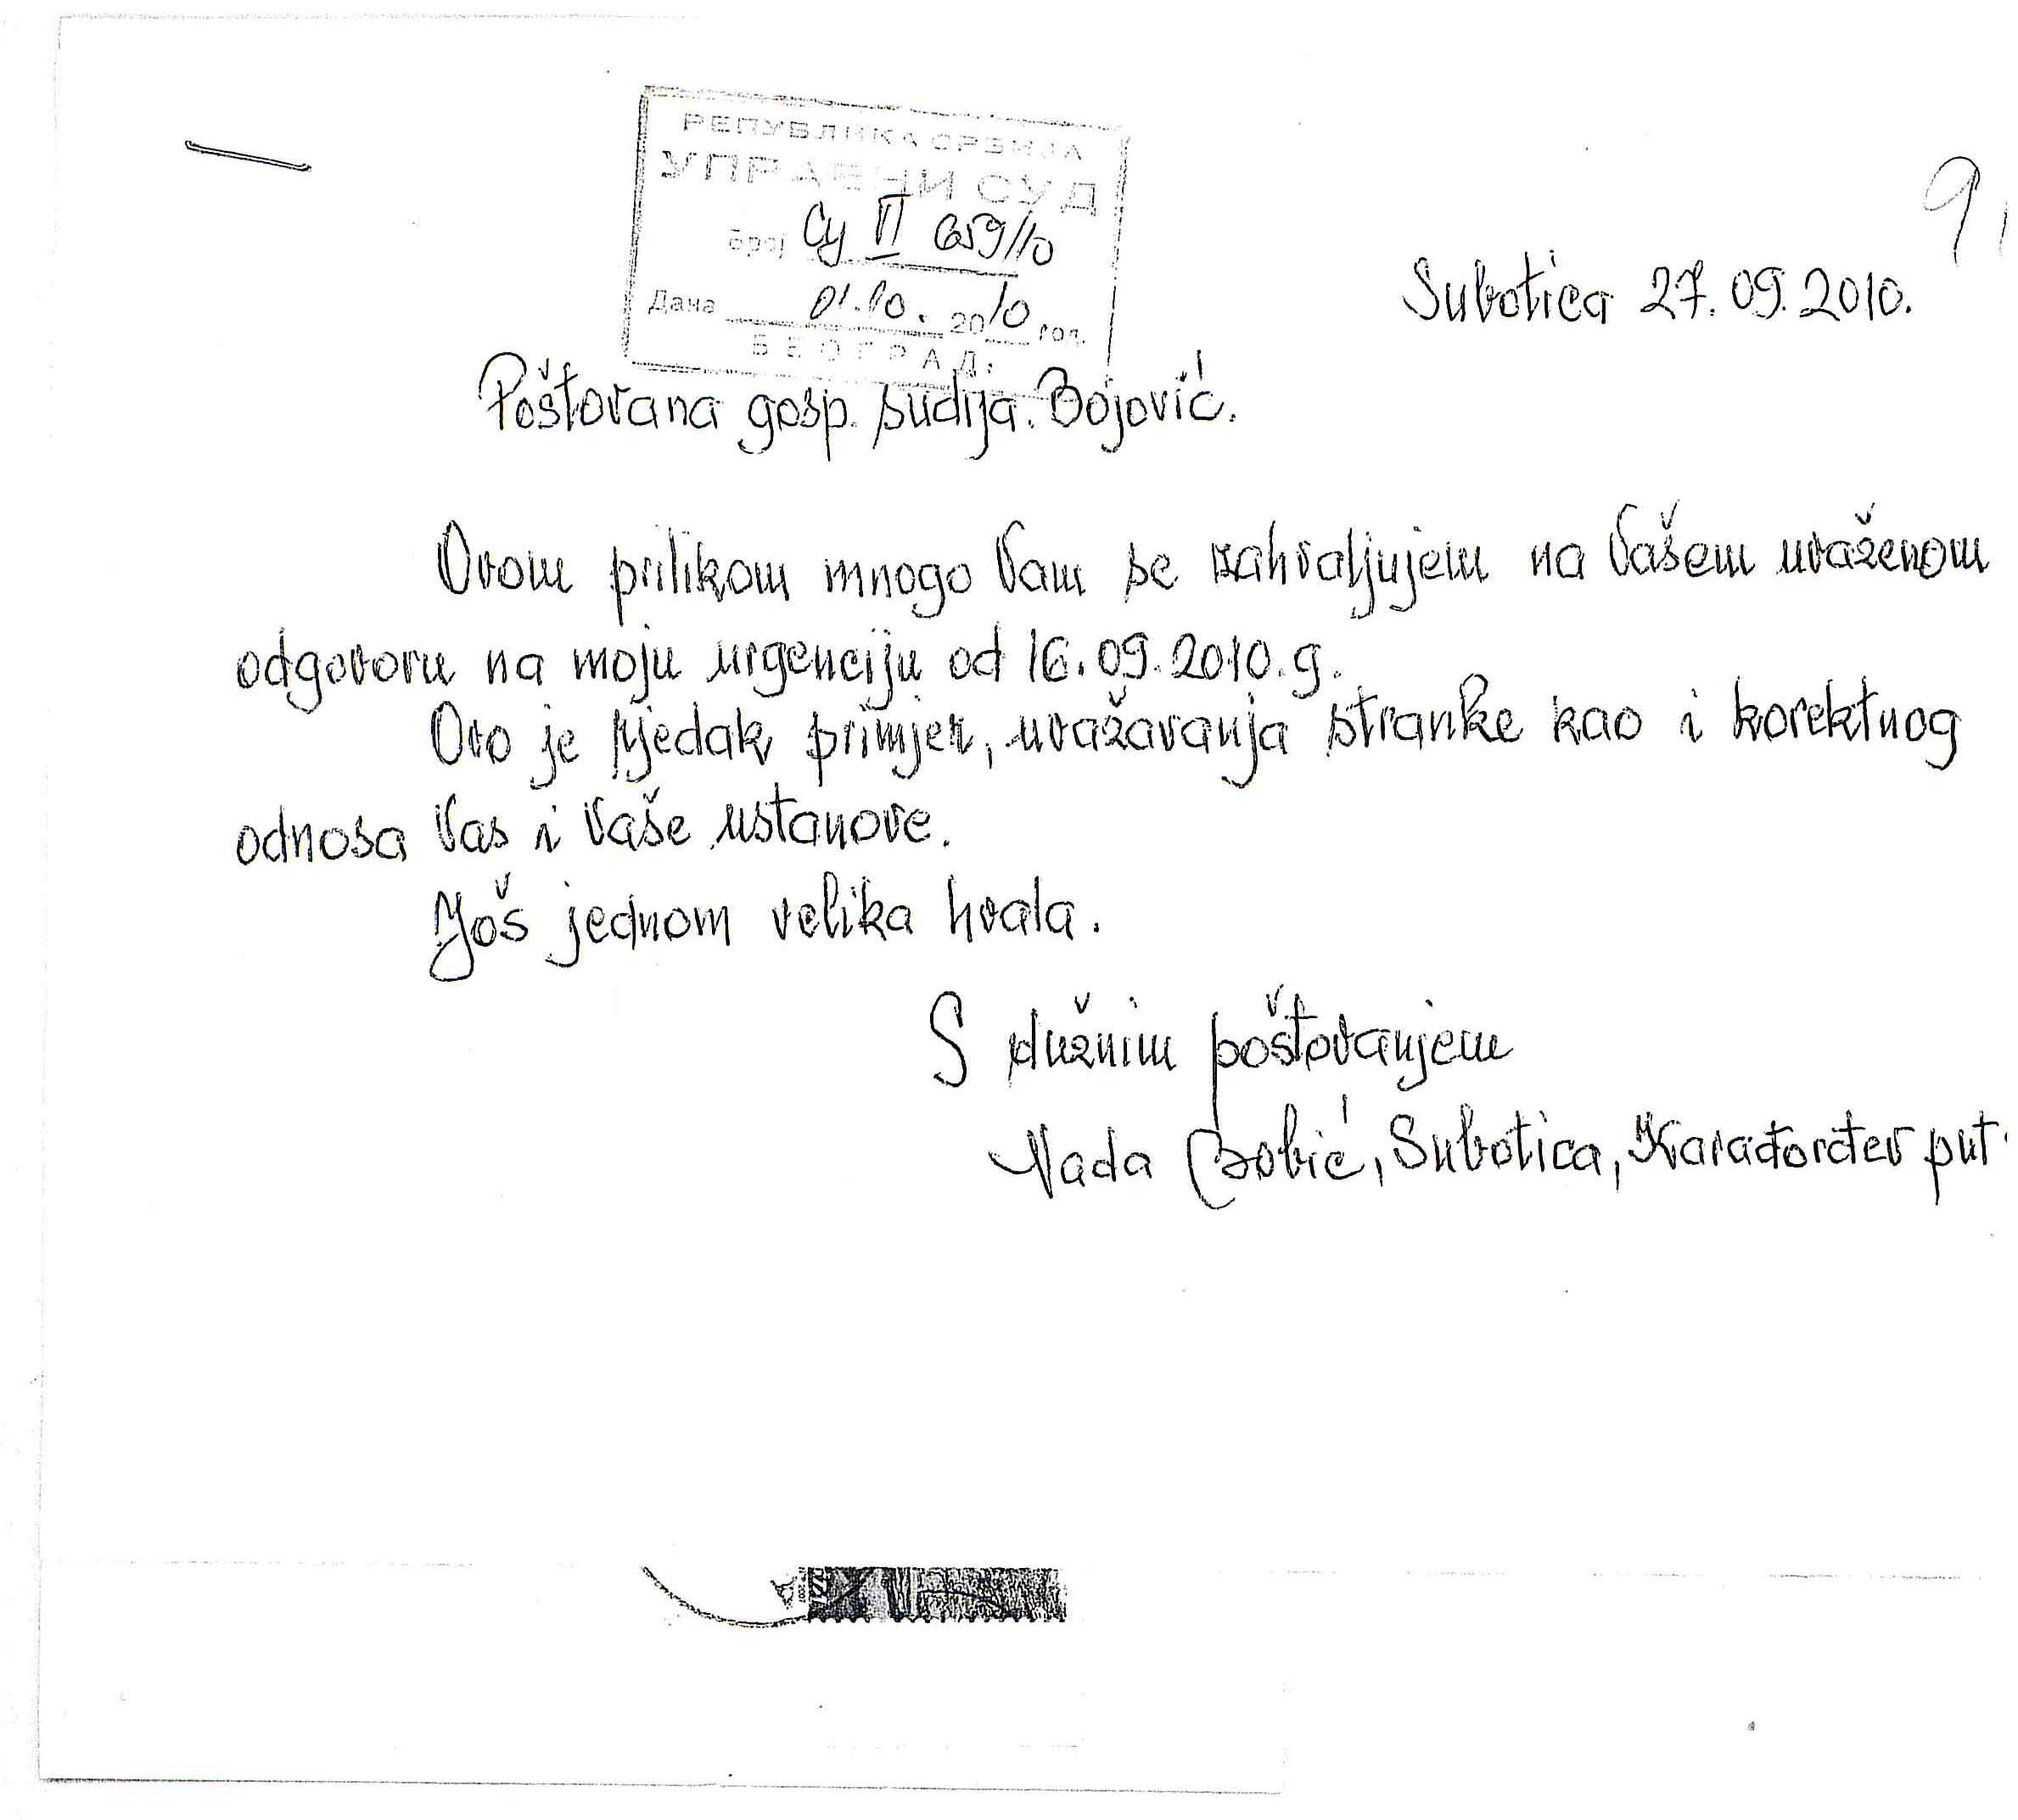 РЕПУБЛИКА СРБИЈА
УПРАВНИ СУД
Број Су II 659/10
Дана 01.10. 2010 год.
БЕОГРАД.
9
Subotica 27.09.2010.
Poštovana gosp. sudija. Bojović.
Ovom prilikom mnogo Vam se zahvaljujem na Vašem uvaženom
odgovoru na moju urgenciju od 16.09.2010.g.
Ovo je rjedak primjer, uvažavanja stranke kao i korektnog
odnosa Vas i Vaše ustanove.
Još jednom velika hvala.
S dužnim poštovanjem
Nada Bobić, Subotica, Karađorđev put